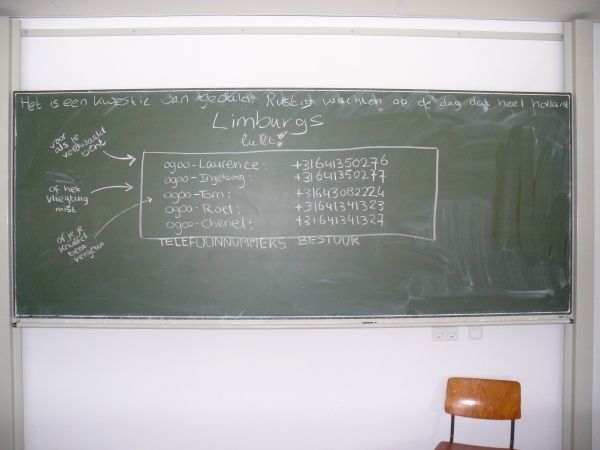 Het is een kwestie van geduld. Rustig wachten op de dag dat heel holland
Limburgs
lult!
voor als je verdwaald bent
of het vliegtuig mist
of je je knuffel bent vergeten
ogoo-Laurence: +31641350276
ogoo-Ingeborg: +31641350277
ogoo-Tom: +31643082224
ogoo-Roel: +31641341323
ogoo-Cheriel: +31641341327
TELEFOONNUMMERS BESTUUR